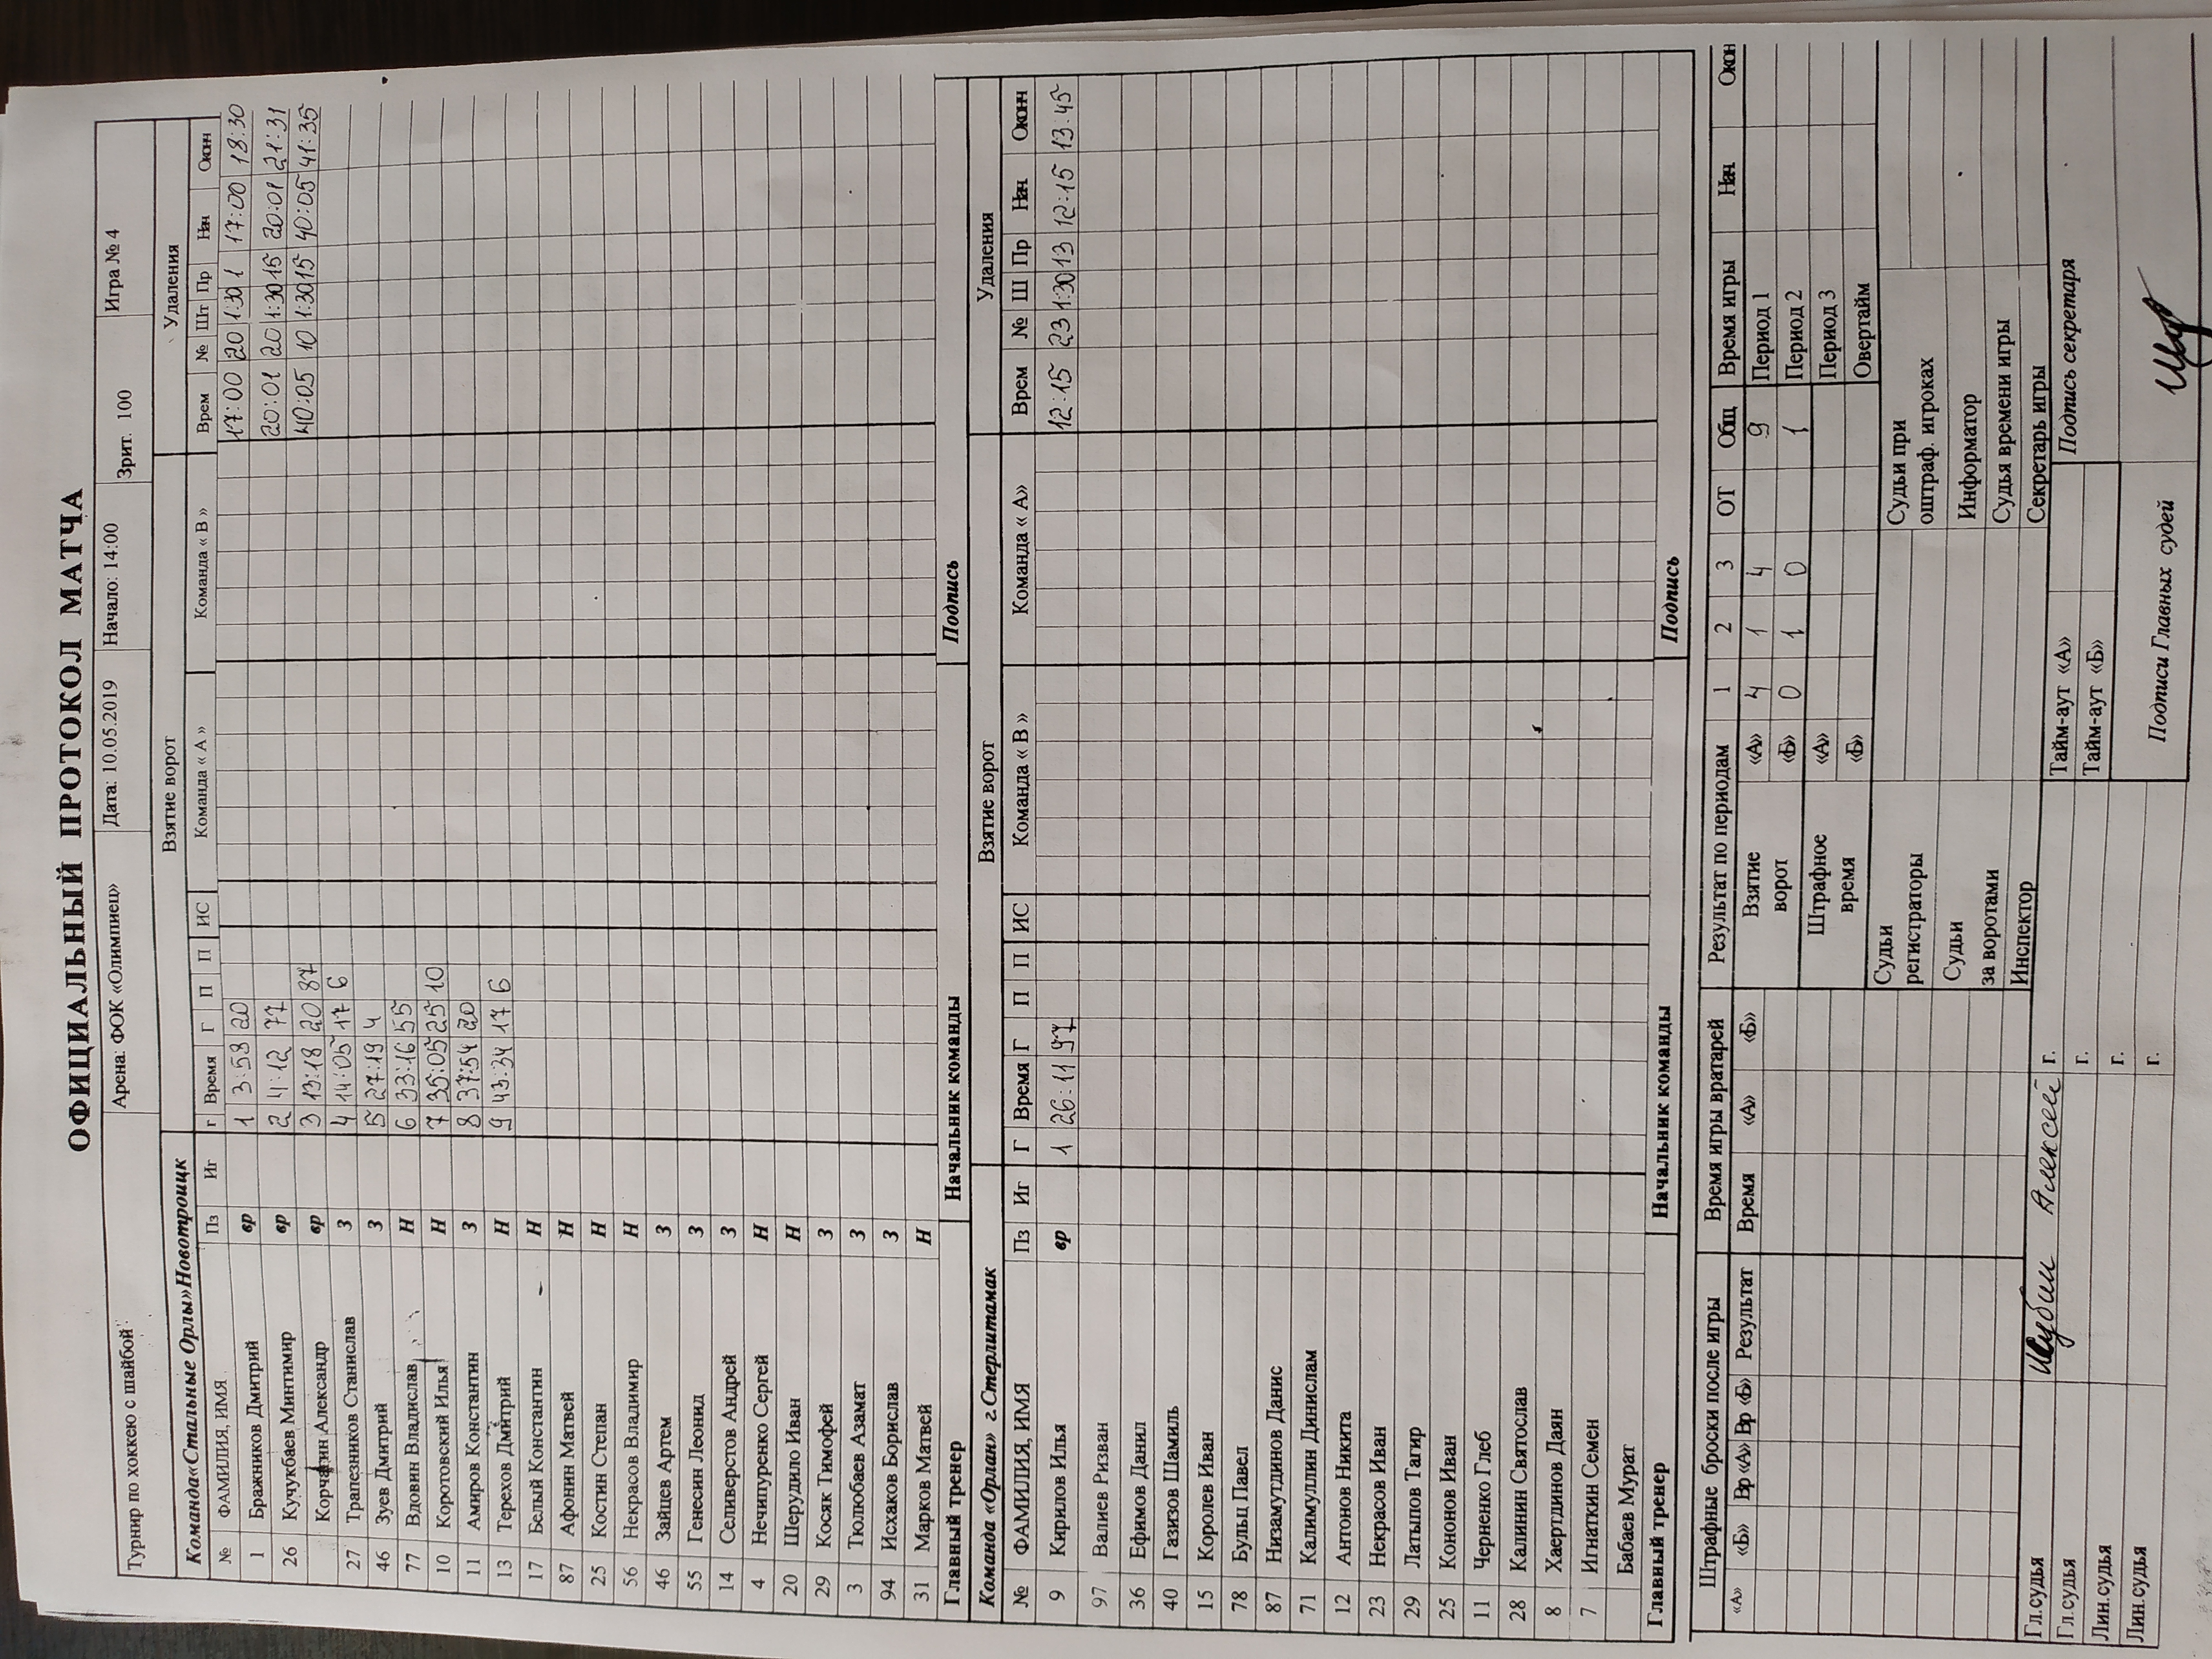 ОФИЦИАЛЬНЫЙ ПРОТОКОЛ МАТЧА
Турнир по хоккею с шайбой Арена: ФОК «Олимпиец» Дата: 10.05.2019 Начало: 14:00 Зрит. 100 Игра № 4
Команда«Стальные Орлы»Новотроицк Взятие ворот Удаления
№ ФАМИЛИЯ, ИМЯ Пз Иг г Время Г П П ИС Команда « А » Команда « В » Врем № Шт Пр Нач Окон
1 Бражников Дмитрий вр 1 3:53 20 17:00 20 1:30 1 17:00 18:30
26 Кучукбаев Минтимир вр 2 11:12 77 20:01 20 1:30 15 20:01 21:31
Корчагин Александр вр 3 13:18 20 87 40:05 10 1:30 15 40:05 41:35
27 Трапезников Станислав З 4 14:05 17 6
46 Зуев Дмитрий З 5 27:19 4
77 Вдовин Владислав Н 6 33:16 55
10 Коротовский Илья Н 7 35:05 25 10
11 Амиров Константин З 8 37:54 20
13 Терехов Дмитрий Н 9 43:34 17 6
17 Белый Константин Н
87 Афонин Матвей Н
25 Костин Степан Н
56 Некрасов Владимир Н
46 Зайцев Артем З
55 Генесин Леонид З
14 Селиверстов Андрей З
4 Нечипуренко Сергей Н
20 Шерудило Иван Н
29 Косяк Тимофей З
3 Тюлюбаев Азамат З
94 Исхаков Борислав З
31 Марков Матвей Н
Главный тренер Начальник команды Подпись
Команда «Орлан» г.Стерлитамак Взятие ворот Удаления
№ ФАМИЛИЯ, ИМЯ Пз Иг Г Время Г П П ИС Команда « В » Команда « А» Врем № Ш Пр Нач Окон
9 Кирилов Илья вр 1 26:11 97 12:15 23 1:30 13 12:15 13:45
97 Валиев Ризван
36 Ефимов Данил
40 Газизов Шамиль
15 Королев Иван
78 Бульц Павел
87 Низамутдинов Данис
71 Калимуллин Динислам
12 Антонов Никита
23 Некрасов Иван
29 Латыпов Тагир
25 Кононов Иван
11 Черненко Глеб
28 Калинин Святослав
8 Хаертдинов Даян
7 Игнаткин Семен
Бабаев Мурат
Главный тренер Начальник команды Подпись
Штрафные броски после игры Время игры вратарей Результат по периодам 1 2 3 ОТ Общ Время игры Нач Окон
«А» «Б» Вр «А» Вр «Б» Результат Время «А» «Б» Взятие ворот «А» 4 1 4 9 Период 1
«Б» 0 1 0 1 Период 2
Штрафное время «А» Период 3
«Б» Овертайм
Судьи регистраторы Судьи при оштраф. игроках
Судьи за воротами Информатор
Судья времени игры
Инспектор Секретарь игры
Гл.судья Шубин Алексей г. Тайм-аут «А» Подпись секретаря
Гл.судья г. Тайм-аут «Б»
Лин.судья г. Подписи Главных судей
Лин.судья г.